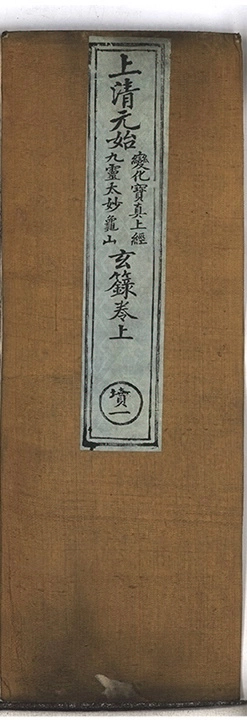 上清元始
變化寶真上經
九靈太妙龜山
玄籙卷上
墳一